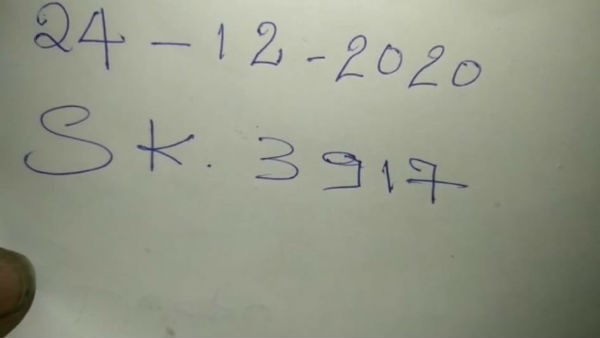 24-12-2020
SK. 3917